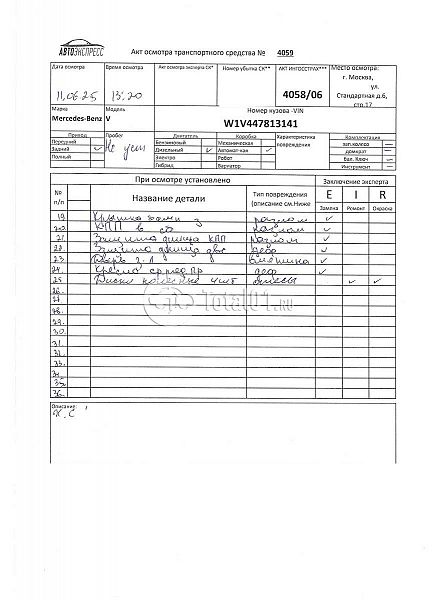 АВТОЭКСПРЕСС
Акт осмотра транспортного средства № 4059
Дата осмотра
Время осмотра
Акт осмотра эксперта СК*
Номер убытка СК**
АКТ ИНГОССТРАХ***
Место осмотра:
11.06.25
13:20
4058/06
г. Москва,
ул.
Стандартная д.6,
стр.17
Марка
Модель
Номер кузова -VIN
Mercedes-Benz
V
W1V447813141
Привод
Пробег
Двигатель
Коробка
Характеристика повреждения
Комплектация
Передний
Бензиновый
Механическая
зап.колесо —
Задний ✓
Дизельный ✓
Автомат-кая ✓
домкрат —
Полный
Электро
Робот
бал. Ключ —
Гибрид
Вариатор
Инструмент —
При осмотре установлено
Заключение эксперта
№ п/п
Название детали
Тип повреждения (описание см.Ниже
E I R
Замена
Ремонт
Окраска
19. разлом ✓
КПП в сб ✓
21. КПП ✓
22. ✓
23. вмятина ✓
24. деф ✓
25. Диски 4шт ✓ ✓
26.
27.
28.
29.
30.
31.
32.
33.
34.
35.
36.
Total01.ru
Описание: